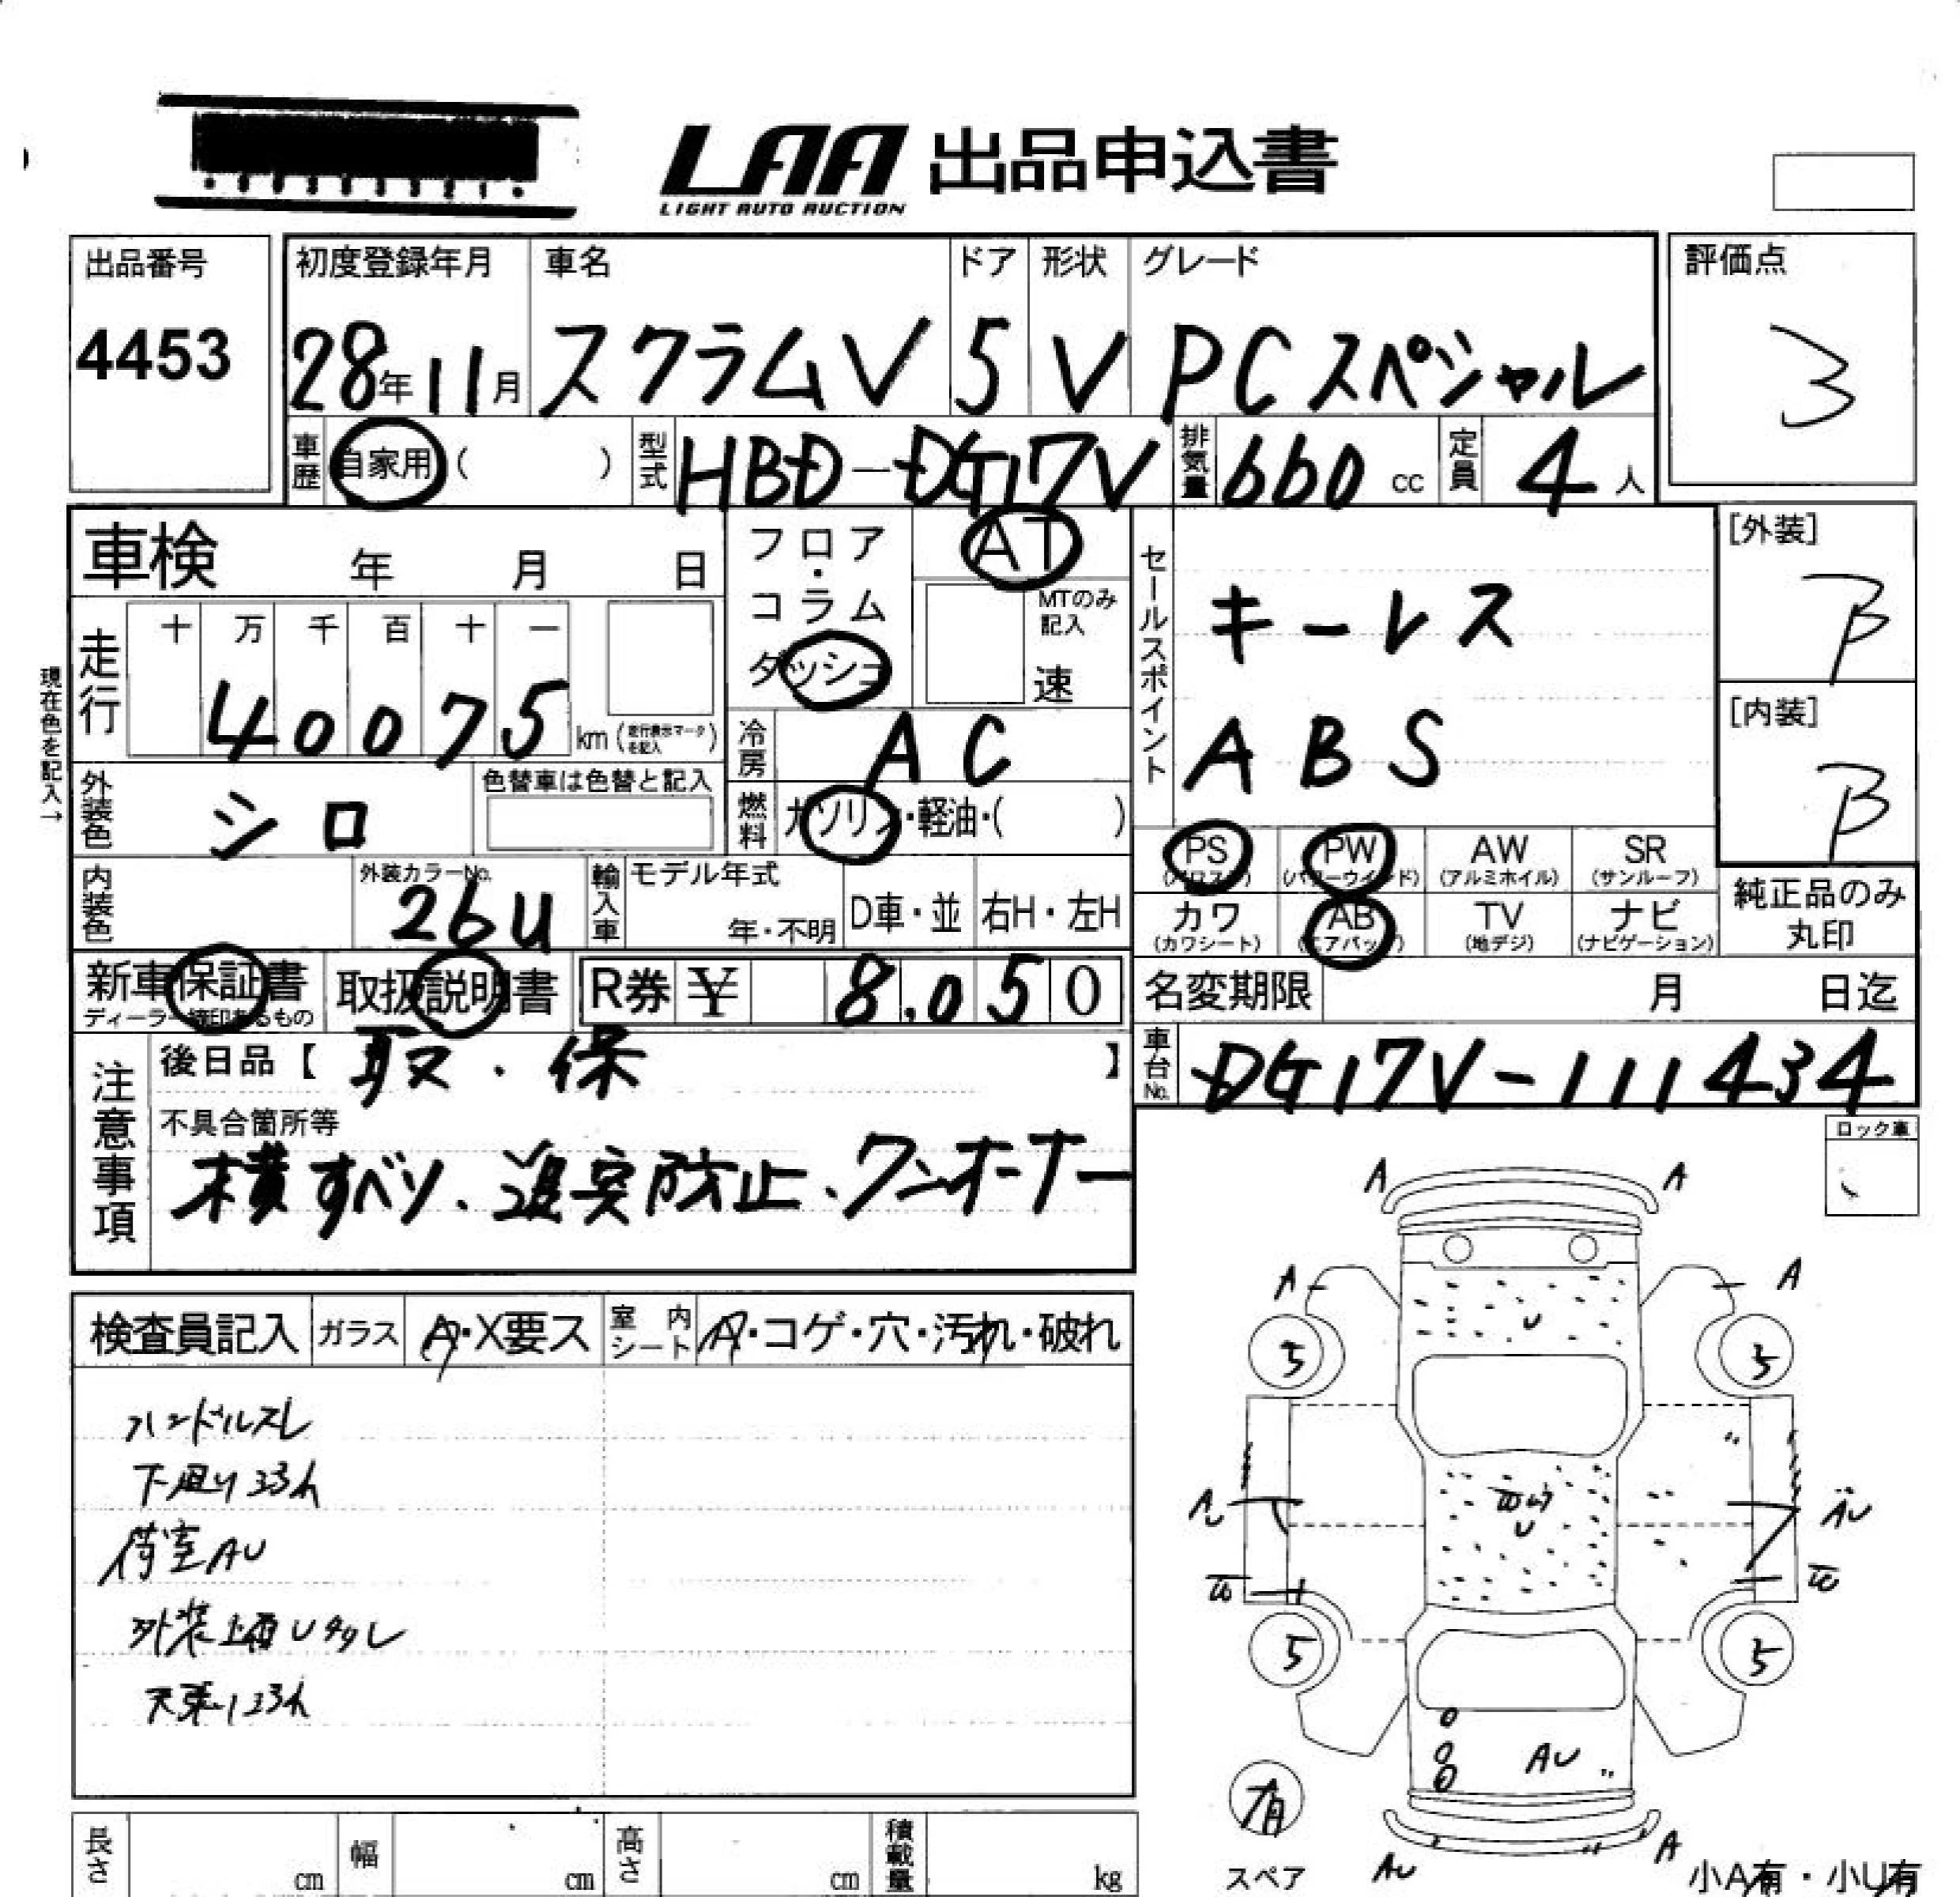 LAA 出品申込書
LIGHT AUTO AUCTION
出品番号
4453
初度登録年月 車名 ドア 形状 グレード
28年11月 スクラムV 5 V PCスペシャル
評価点
3
車歴 自家用 ( ) 型式 HBD-DG17V 排気量 660 cc 定員 4 人
車検 年 月 日
フロア・コラム ダッシュ
AT
MTのみ記入
速
セールスポイント
キーレス
ABS
[外装]
B
[内装]
B
現在色を記入→
走行 十 万 千 百 十 一
40075 km (走行表示マークを記入)
冷房 AC
外装色 シロ 色替車は色替と記入
燃料 ガソリン・軽油・( )
PS (パワステ) PW (パワーウインド) AW (アルミホイル) SR (サンルーフ)
カワ (カワシート) AB (エアバッグ) TV (地デジ) ナビ (ナビゲーション)
純正品のみ丸印
内装色 外装カラーNo. 26U 輸入車 モデル年式 年・不明 D車・並 右H・左H
新車保証書 取扱説明書 R券 ¥ 8,050
ディーラー捺印あるもの
名変期限 月 日迄
車台No. DG17V-111434
注意事項
後日品【 取・保 】
不具合箇所等
横すべり、追突防止、ワンオーナー
ロック車
検査員記入 ガラス A・X要ス 室内シート A・コゲ・穴・汚れ・破れ
ハンドルスレ
下廻りヨゴレ
荷室AU
外装上面Uタタシ
天張りヨゴレ
A A
A A
5 5
U
AU
W U
AU
W W
5 5
AU
有
スペア
AU A
小A有・小U有
長さ cm 幅 cm 高さ cm 積載量 kg